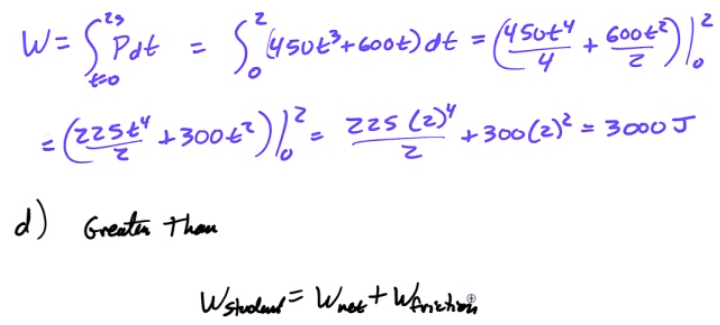 W = ∫_{t=0}^{2s} Pdt = ∫_0^2 (450t³+600t) dt = (450t⁴/4 + 600t²/2)|_0^2
= (225t⁴/2 + 300t²)|_0^2 = 225(2)⁴/2 + 300(2)² = 3000 J
d) Greater Than
Wstudent = Wnet + Wfriction